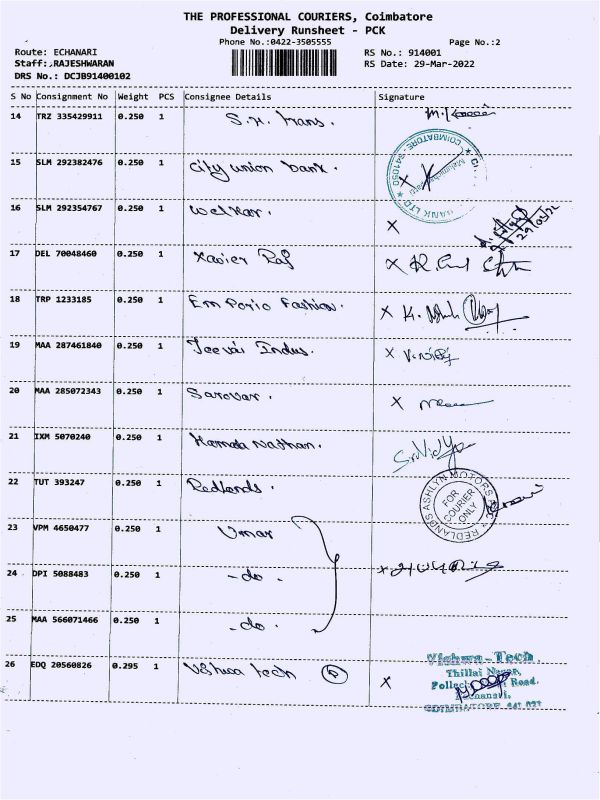 THE PROFESSIONAL COURIERS, Coimbatore
Delivery Runsheet - PCK
Phone No.:0422-3505555 Page No.:2
Route: ECHANARI RS No.: 914001
Staff:.RAJESHWARAN RS Date: 29-Mar-2022
DRS No.: DCJB91400102
S No Consignment No Weight PCS Consignee Details Signature
14 TRZ 335429911 0.250 1 S.H. trans.
15 SLM 292382476 0.250 1 city union bank.
COIMBATORE. 641050
BANK LTD
16 SLM 292354767 0.250 1 welkar. X
29/03/22
17 DEL 70048460 0.250 1 Xavier Raj X
18 TRP 1233185 0.250 1 Emporio Fashion. X
19 MAA 287461840 0.250 1 Jeevai Indus. X
20 MAA 285072343 0.250 1 Sarovar. X
21 IXM 5070240 0.250 1 Kamala nathan. SriVidya
22 TUT 393247 0.250 1 Redlands.
REDLANDS ASHLYN MOTORS
FOR
COURIER
ONLY
23 VPM 4650477 0.250 1 Umar
24 DPI 5088483 0.250 1 -do. X
25 MAA 566071466 0.250 1 -do.
26 EDQ 20560826 0.295 1 Vishwa tech X
Vishwa-Tech
Thillai Nagar,
Road.
COIMBATORE